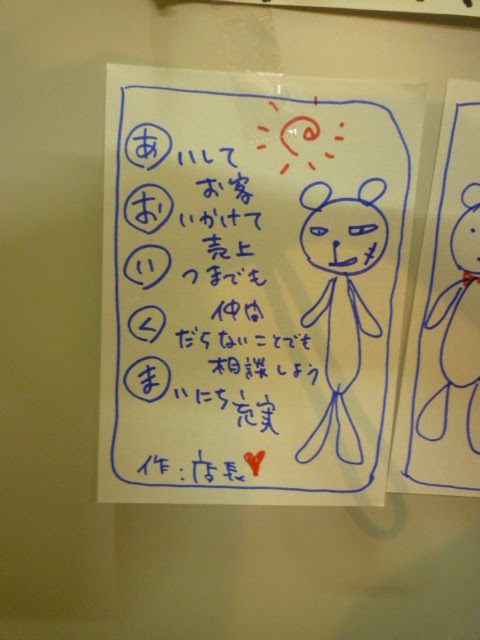 あいして
お客
おいかけて
売上
いつまでも
仲間
くだらないことでも
相談しよう
まいにち充実
作:店長